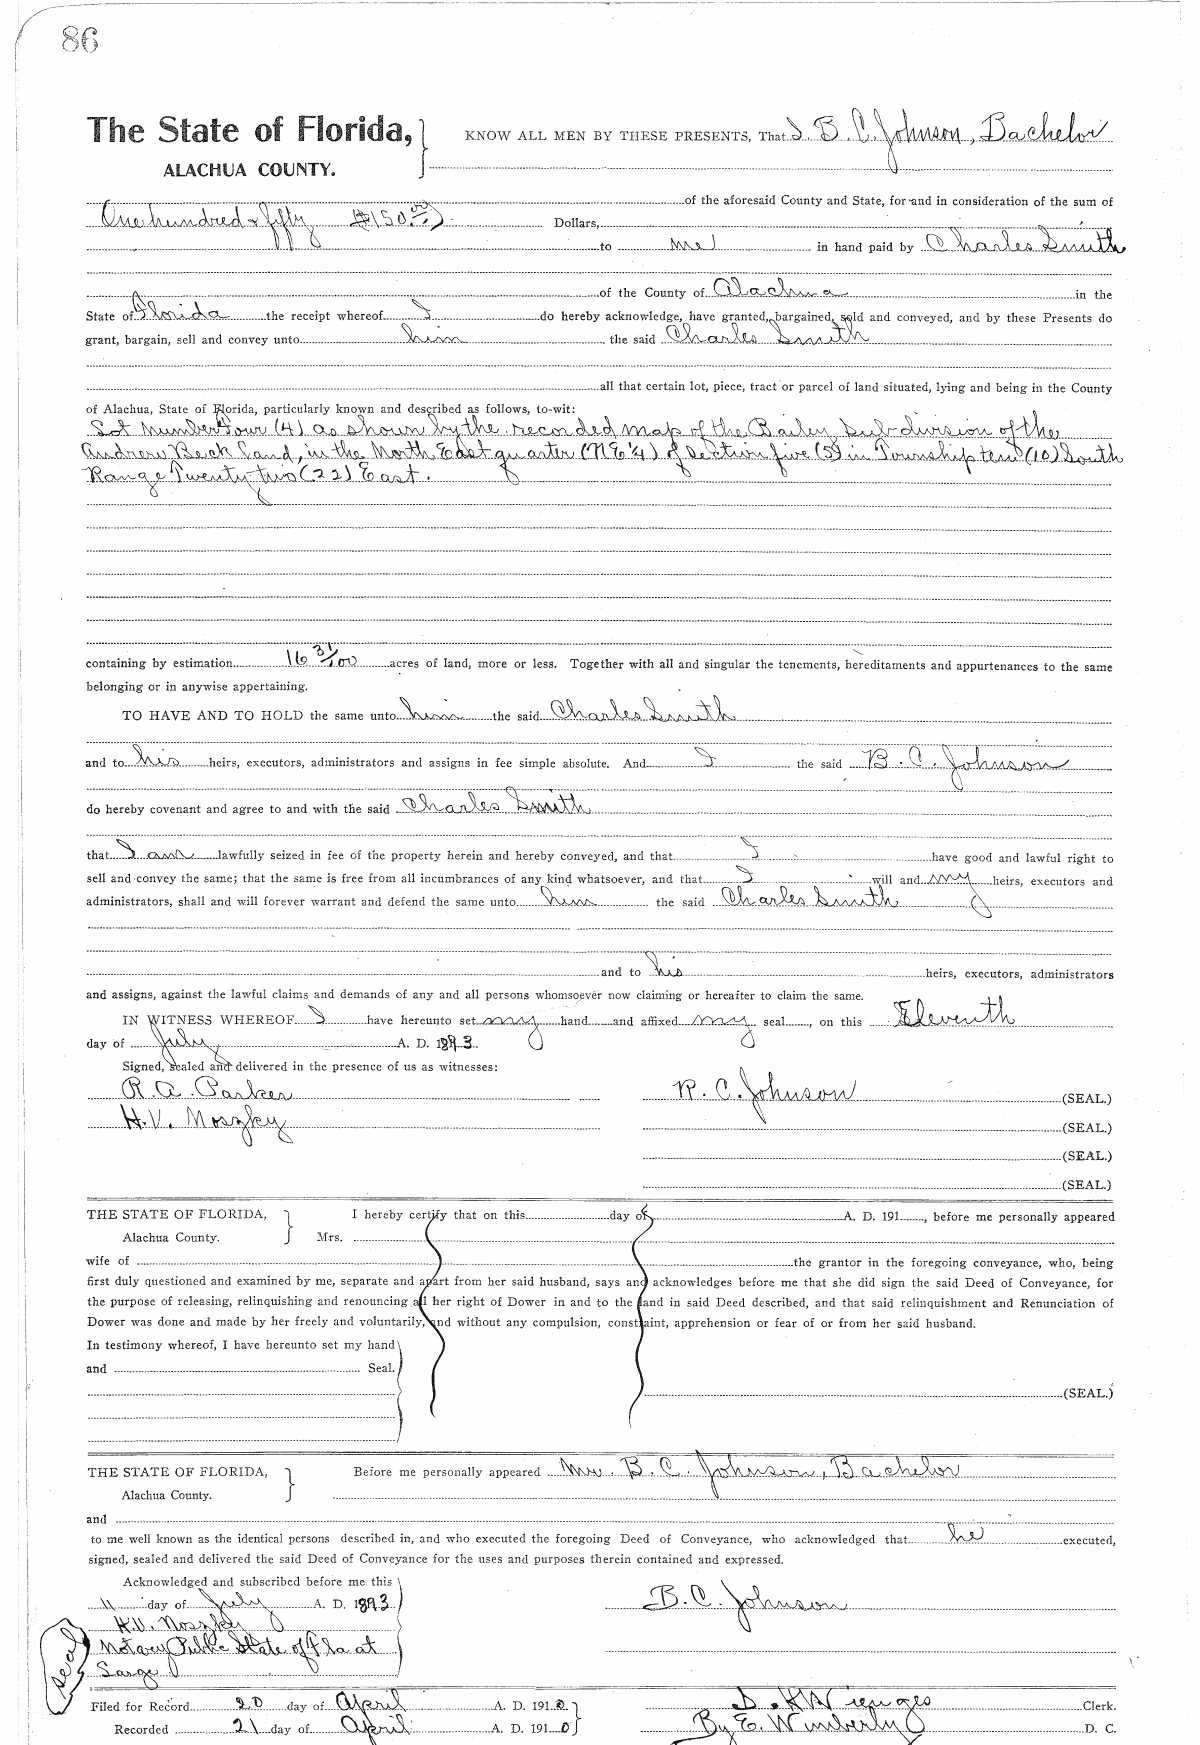 86
The State of Florida,
ALACHUA COUNTY.
KNOW ALL MEN BY THESE PRESENTS, That I B. C. Johnson, Bachelor
of the aforesaid County and State, for and in consideration of the sum of
One hundred & fifty ($150.00) Dollars,
to me in hand paid by Charles Smith
of the County of Alachua in the
State of Florida the receipt whereof I do hereby acknowledge, have granted, bargained, sold and conveyed, and by these Presents do
grant, bargain, sell and convey unto him the said Charles Smith
all that certain lot, piece, tract or parcel of land situated, lying and being in the County
of Alachua, State of Florida, particularly known and described as follows, to-wit:
Lot Number Four (4) as shown by the recorded map of the Bailey Subdivision of the
Andrew Beck Land, in the North East quarter (NE 1/4) of Section five (5) in Township ten (10) South
Range Twenty two (22) East.
containing by estimation 16 31/100 acres of land, more or less. Together with all and singular the tenements, hereditaments and appurtenances to the same
belonging or in anywise appertaining.
TO HAVE AND TO HOLD the same unto him the said Charles Smith
and to his heirs, executors, administrators and assigns in fee simple absolute. And I the said B. C. Johnson
do hereby covenant and agree to and with the said Charles Smith
that I am lawfully seized in fee of the property herein and hereby conveyed, and that I have good and lawful right to
sell and convey the same; that the same is free from all incumbrances of any kind whatsoever, and that I will and my heirs, executors and
administrators, shall and will forever warrant and defend the same unto him the said Charles Smith
and to his heirs, executors, administrators
and assigns, against the lawful claims and demands of any and all persons whomsoever now claiming or hereafter to claim the same.
IN WITNESS WHEREOF I have hereunto set my hand and affixed my seal, on this Eleventh
day of July A. D. 1893.
Signed, sealed and delivered in the presence of us as witnesses:
R. A. Parker R. C. Johnson (SEAL.)
H. V. Moszky (SEAL.)
(SEAL.)
(SEAL.)
THE STATE OF FLORIDA, I hereby certify that on this day of A. D. 191, before me personally appeared
Alachua County. Mrs.
wife of the grantor in the foregoing conveyance, who, being
first duly questioned and examined by me, separate and apart from her said husband, says and acknowledges before me that she did sign the said Deed of Conveyance, for
the purpose of releasing, relinquishing and renouncing all her right of Dower in and to the land in said Deed described, and that said relinquishment and Renunciation of
Dower was done and made by her freely and voluntarily, and without any compulsion, constraint, apprehension or fear of or from her said husband.
In testimony whereof, I have hereunto set my hand
and Seal.
(SEAL.)
THE STATE OF FLORIDA, Before me personally appeared Mr. B. C. Johnson, Bachelor
Alachua County.
and
to me well known as the identical persons described in, and who executed the foregoing Deed of Conveyance, who acknowledged that he executed,
signed, sealed and delivered the said Deed of Conveyance for the uses and purposes therein contained and expressed.
Acknowledged and subscribed before me this
11 day of July A. D. 1893 B. C. Johnson
H. V. Moszky
Notary Public State of Fla at
Large
seal
Filed for Record 20 day of April A. D. 1910. Clerk.
Recorded 21 day of April A. D. 1910 By E. Wimberly D. C.